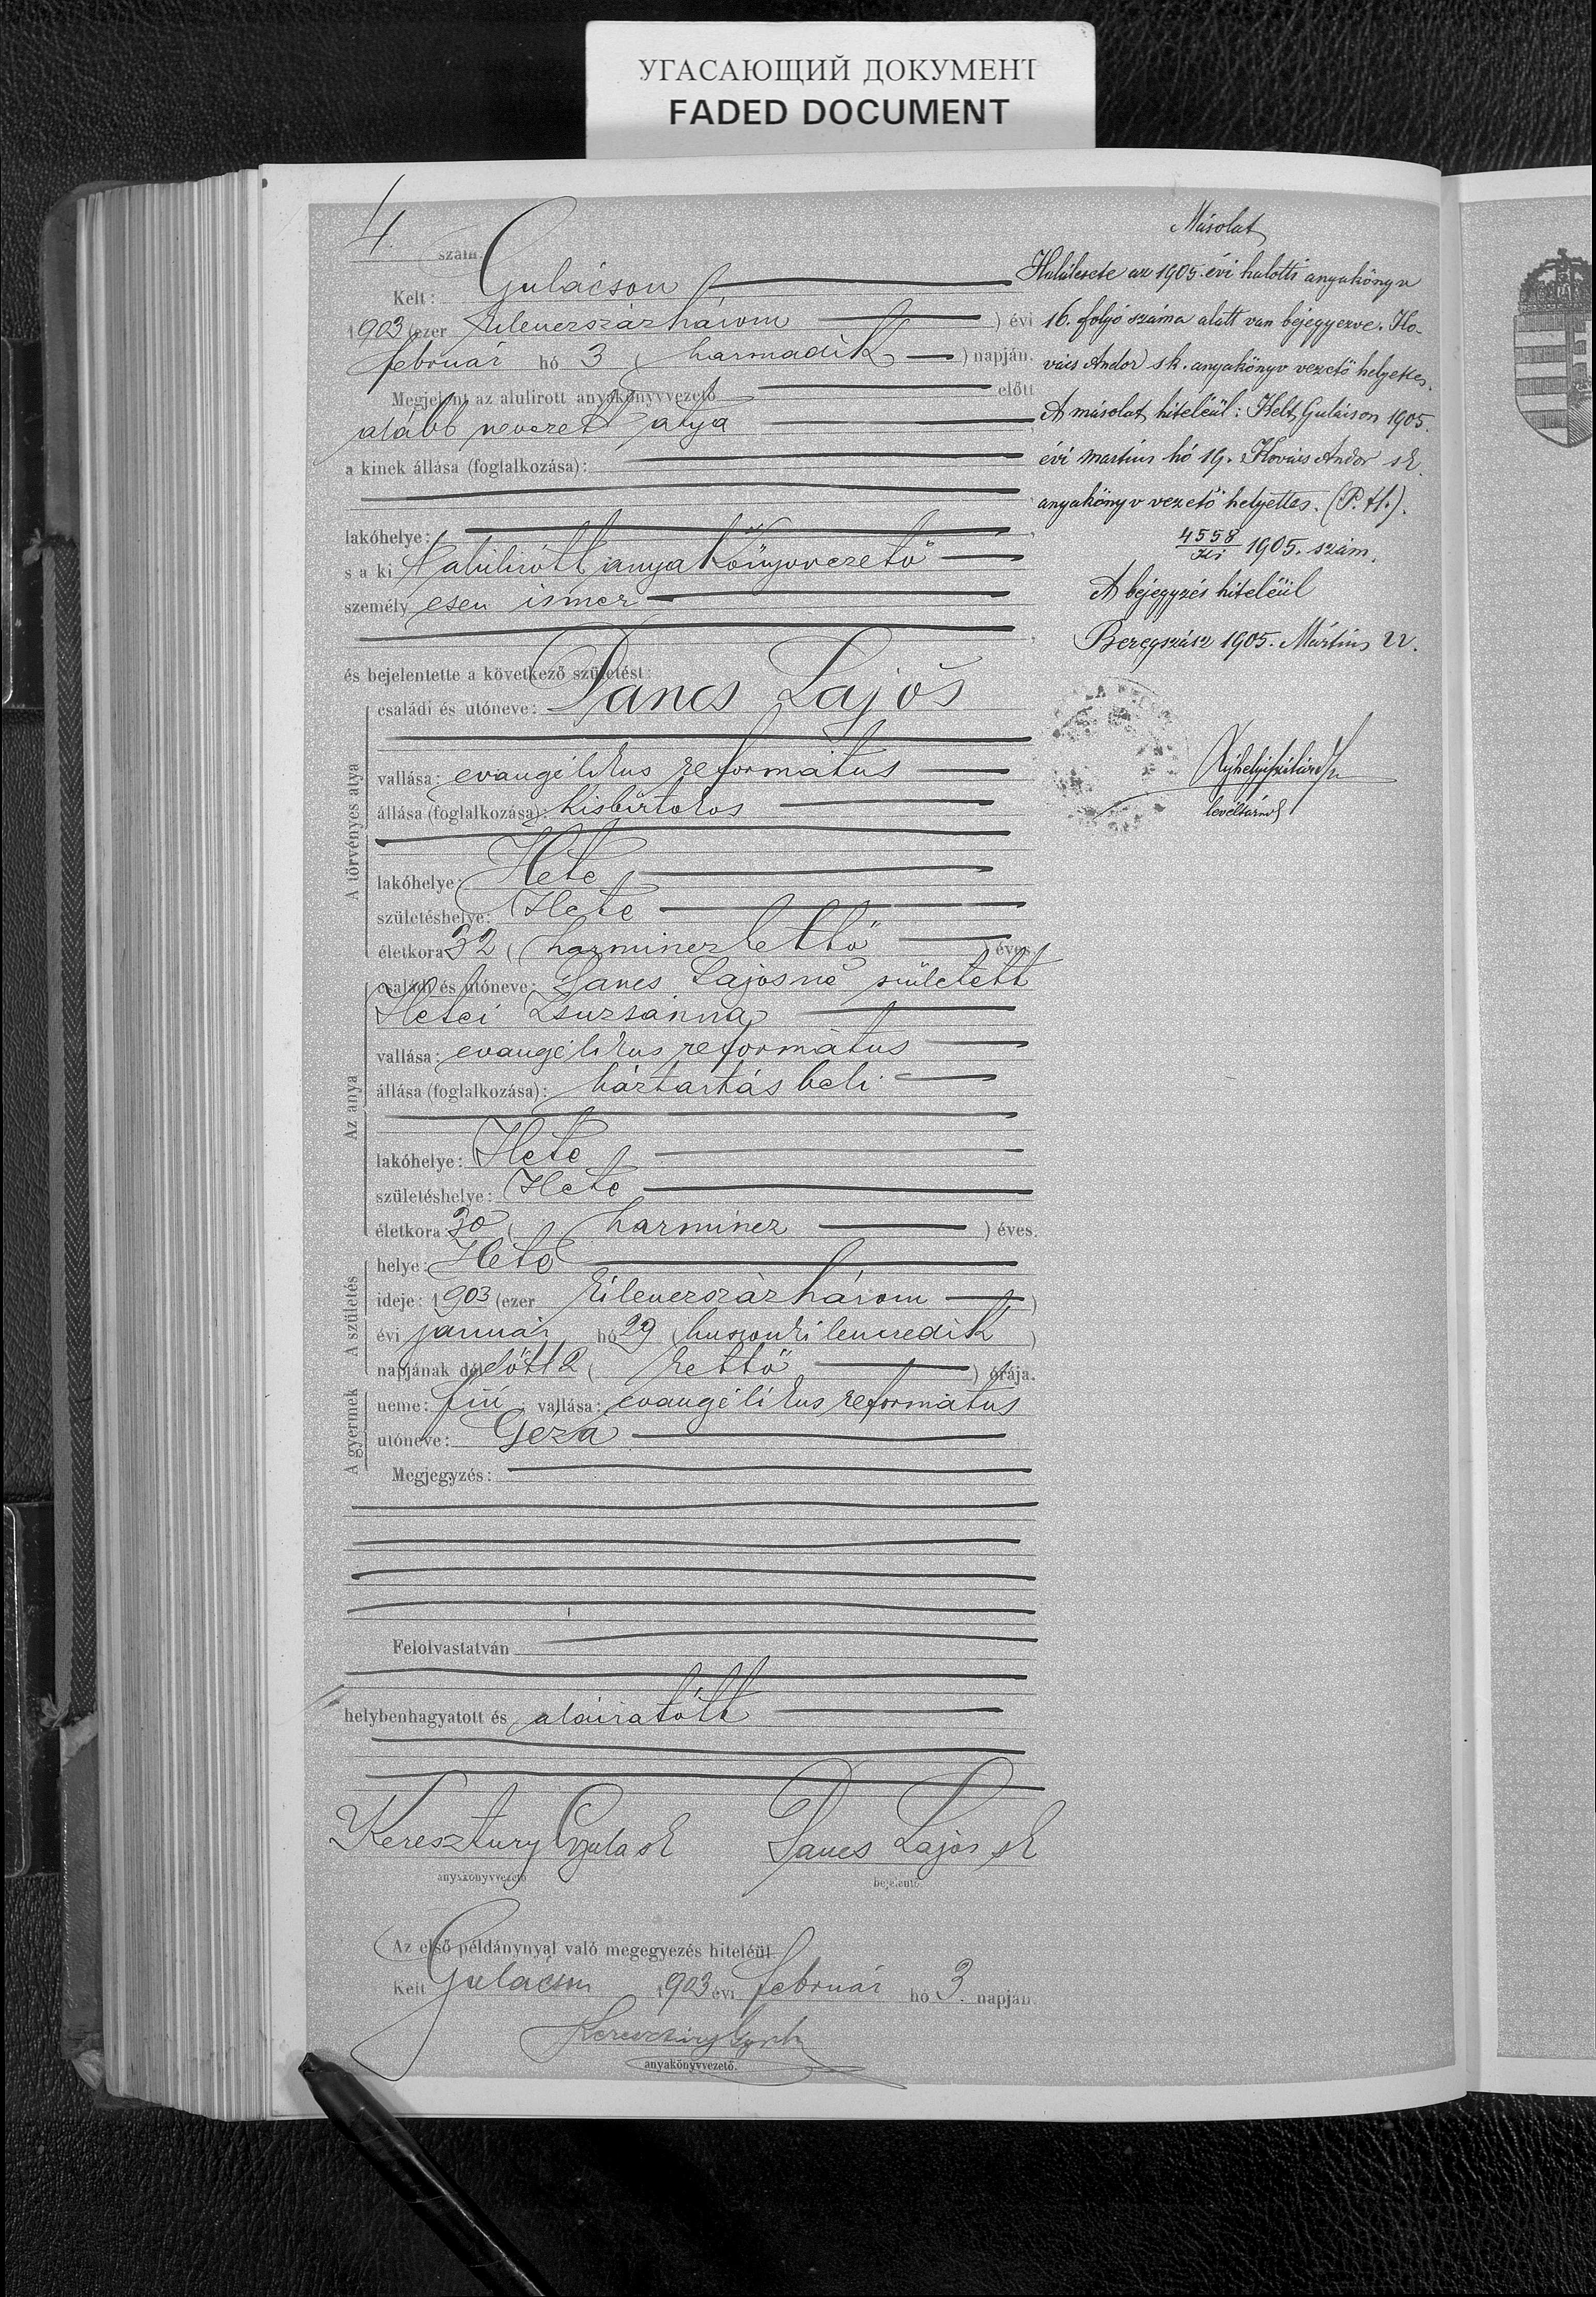 УГАСАЮЩИЙ ДОКУМЕНТ
FADED DOCUMENT
4 szám.
Kelt: Gulácson
1903 (ezer kilenczszázhárom) évi
február hó 3 (harmadik) napján.
Megjelent az alulirott anyakönyvvezető előtt
alább nevezett atya,
a kinek állása (foglalkozása):
lakóhelye:
s a ki t alulirott anyakönyvvezető
személy esen ismer
és bejelentette a következő születést:
A törvényes atya
családi és utóneve: Dancs Lajos
vallása: evangélikus református
állása (foglalkozása): kisbirtokos
lakóhelye: Hete
születéshelye: Hete
életkora: 32 (harminczkettő) éves.
Az anya
családi és utóneve: Dancs Lajosné született
Hetei Zsuzsánna
vallása: evangélikus református
állása (foglalkozása): háztartásbeli
lakóhelye: Hete
születéshelye: Hete
életkora: 30 (harmincz) éves.
A születés
helye: Hete
ideje: 1903 (ezer kilenczszázhárom)
évi január hó 29 (huszonkilenczedik)
napjának délelőtt 2 (kettő) órája.
A gyermek
neme: fiú; vallása: evangélikus református
utóneve: Géza
Megjegyzés:
Felolvastatván
helybenhagyatott és aláiratott
Keresztury Gyula sk Dancs Lajos sk
anyakönyvvezető bejelentő.
Az első példánynyal való megegyezés hiteléül
Kelt Gulácson 1903 évi február hó 3. napján.
Keresztury Gyula
anyakönyvvezető.
Másolat
Halálesete az 1905. évi halotti anyakönyv
16. folyó száma alatt van bejegyezve. Ko-
vács Andor s.k. anyakönyv vezető helyettes.
A másolat hiteléül: Kelt Gulácson 1905.
évi martius hó 19. Kovács Andor sk.
anyakönyv vezető helyettes. (P. H.).
4558/ki 1905. szám.
A bejegyzés hiteléül
Beregszász 1905. Mártius 22.
levéltárnok